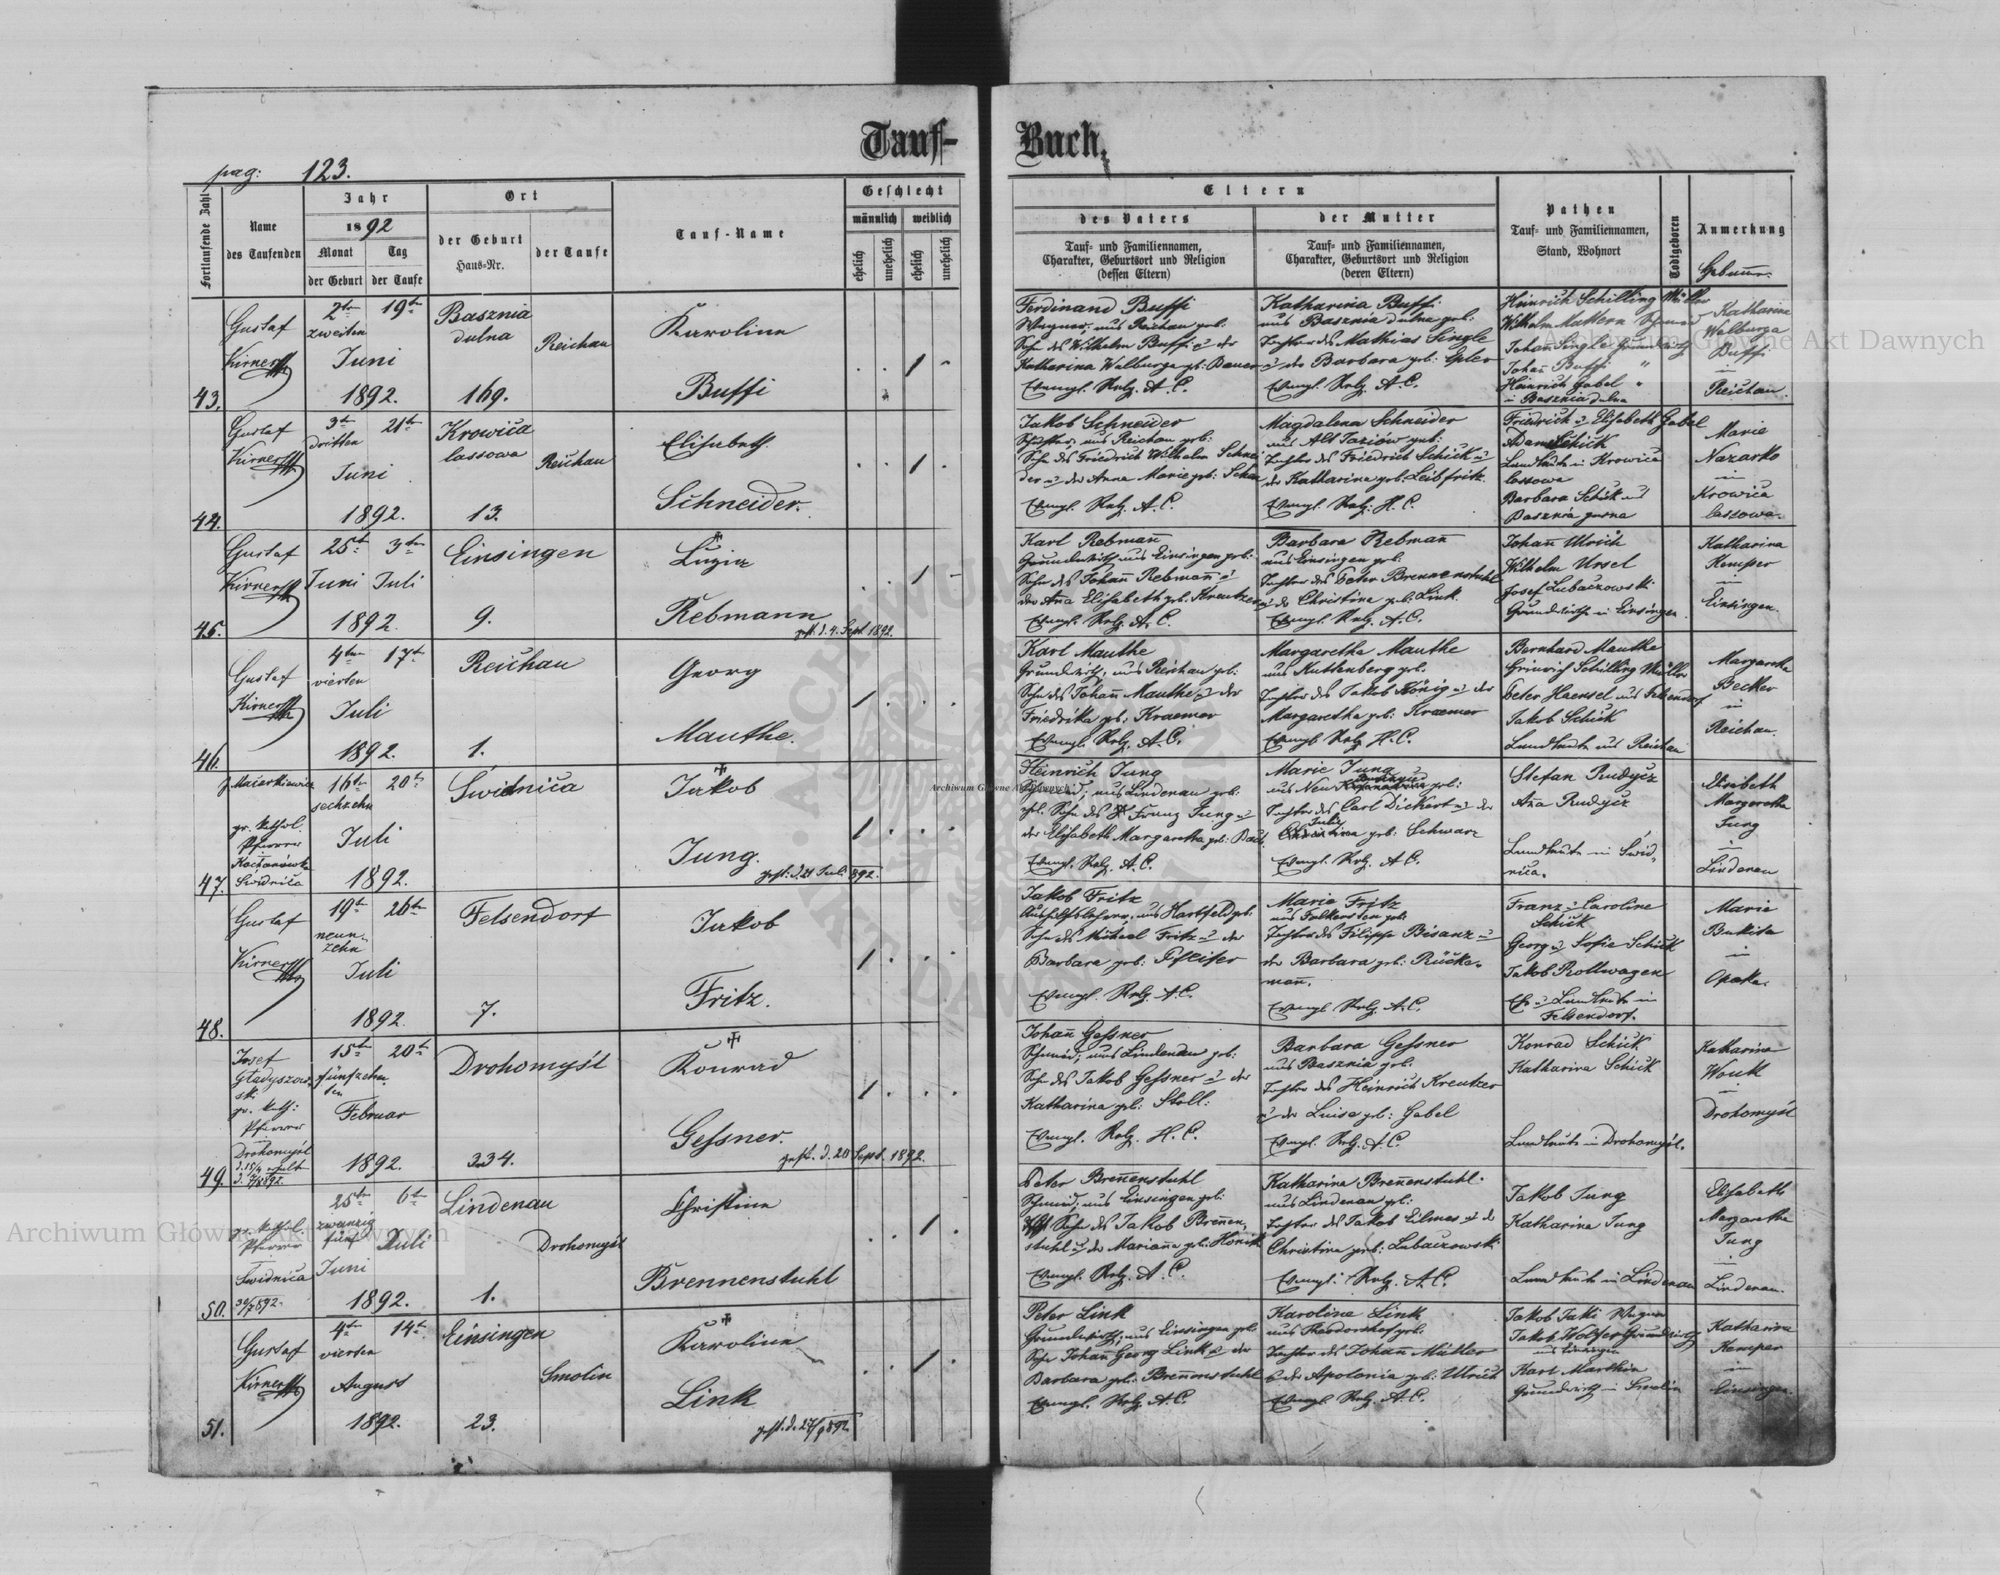 Tauf-Buch.
pag: 123.
Fortlaufende Zahl
Name
des Taufenden
Jahr
1892
Monat
der Geburt
Tag
der Taufe
Ort
der Geburt
Haus-Nr.
der Taufe
Tauf-Name
Geschlecht
männlich
weiblich
ehelich
unehelich
ehelich
unehelich
Eltern
des Vaters
Tauf- und Familiennamen,
Charakter, Geburtsort und Religion
(dessen Eltern)
der Mutter
Tauf- und Familiennamen,
Charakter, Geburtsort und Religion
(deren Eltern)
Pathen
Tauf- und Familiennamen,
Stand, Wohnort
Todtgeboren
Anmerkung
43.
Gustaf
Kirner
2ten 19ten
zweiten
Juni
1892.
Basznia
dulna
169.
Reichau
Karoline
Buffi
Ferdinand Buffi
Wagner, aus Reichau geb:
Sohn des Wilhelm Buffi u der
Katharina Walburga gb: Bauer
Evangl. Relg. A. C.
Katharina Buffi
aus Basznia dulna geb:
Tochter des Mathias Single
u der Barbara geb:
Evangl. Relg. A.C.
Heinrich Schilling Müller
Wilhelm Mattern
Johann Single
Johañ Buffi "
Heinrich Gabel "
in Basznia dulna
Katharina
Walburga
Buffi
in
Reichau.
44.
Gustaf
Kirner
3ten 21ten
dritten
Juni
1892.
Krowica
lassowa
13.
Reichau
Elisabeth.
Schneider.
Jakob Schneider
aus Reichau geb:
Sohn des Friedrich Wilhelm Schnei
der u der Anna Marie geb:
Evangl. Relg. A. C.
Magdalena Schneider
aus Alt geb:
Tochter des Friedrich Schick u
der Katharina geb: Leibfritz.
Evangl. Relg. H. C.
Friedrich u Elisabeth Gabel
Adam Schick
Landleute in Krowica
lassowa
Barbara Schick aus
Basznia gorna
Marie
Nazarko
in
Krowica
lassowa.
45.
Gustaf
Kirner
25t 3ten
Juni Juli
1892.
Einsingen
9.
Luzia
Rebmann
gest. d. 4. Sept 1892.
Karl Rebmañ
Grundwirth aus Einsingen geb:
Sohn des Johañ Rebmañ u
der Aña Elisabeth geb: Kreutzer
Evangl. Relg. A. C.
Barbara Rebmañ
aus Einsingen geb.
Tochter des Peter Brennenstuhl
u der Christine geb: Link.
Evangl. Relg. A. C.
Johañ Ulrich
Wilhelm Ursel
Josef Lubaczowski
Grundwirthe in Einsingen
Katharina
Kemper
in
Einsingen.
46.
Gustaf
Kirner
4ten 17ten
vierten
Juli
1892.
Reichau
1.
Georg
Mauthe.
Karl Mauthe
Grundwirth, aus Reichau geb:
Sohn des Johañ Mauthe u der
Friedrika geb: Kraemer
Evangl. Relg. A. C.
Margaretha Mauthe
aus Kuttenberg geb.
Tochter des Jakob König u der
Margaretha geb: Kraemer
Evangl Relg. H. C.
Bernhard Mauthe
Heinrich Schilling Müller
Peter Haensel aus Felsendorf
Jakob Schick
Landleute aus Reichau
Margaretha
Becker
in
Reichau.
47.
J. Maiarkiewicz
gr. kathol.
Pfarrer
Swidnica
16ten 20ten
sechzehn
Juli
1892.
Świdnica
Jakob
Jung.
gest: d. 21 Juli 892.
Heinrich Jung
Schmied; aus Lindenau geb:
Sohn des Franz Jung u
der Elisabeth Margaretha geb:
Evangl. Relg. A. C.
Marie Jung
aus Neu geb:
Tochter des Carl Dickert u der
geb: Schwarz
Evangl. Relg. A. C.
Stefan Rudycz
Aña Rudycz
Landleute in Swid-
nica.
Elisabeth
Margaretha
Jung
in
Lindenau
48.
Gustaf
Kirner
19ten 26ten
neun-
zehn
Juli
1892.
Felsendorf
7.
Jakob
Fritz.
Jakob Fritz
aus Hartfeld geb.
Sohn des Michael Fritz u der
Barbara geb: Pfeifer
Evangl. Relg. A. C.
Marie Fritz
aus Falkenstein geb:
Tochter des Filipp Bisanz u
der Barbara geb: Rücke-
mañ.
Evangl Relg. A. C.
Franz u Caroline
Schick
Georg u Sofia Schick
Jakob Rollwagen
Landleute in
Felsendorf.
Marie
in
Opaka.
49.
Josef
Gładyszow-
ski
gr. kath:
Pfarrer
Drohomyśl
15ten 20ten
fünfzehn-
ten
Februar
1892.
Drohomyśl
334.
Konrad
Gessner.
gest. d. 20 Sept. 1892.
Johañ Gessner
Schmied; aus Lindenau geb:
Sohn des Jakob Gessner u der
Katharina geb: Stoll:
Evangl. Relg. H. C.
Barbara Gessner
aus Basznia geb.
Tochter des Heinrich Kreutzer
u der Luise geb: Gabel
Evangl. Relg. A. C.
Konrad Schick
Katharina Schick
Landleute in Drohomyśl.
Katharina
Wouk
in
Drohomyśl
50.
gr. kathol.
Pfarrer
Swidnica
25ten 6ten
zwanzig
fünf Juli
Juni
1892.
Lindenau
1.
Drohomyśl
Christine
Brennenstuhl
Peter Breñenstuhl
Schmied, aus Einsingen geb:
Sohn des Jakob Breñen-
stuhl u der Mariaña geb: Honik
Evangl. Relg. A. C.
Katharina Breñenstuhl.
aus Lindenau geb:
Tochter des Jakob Eilmes u d
Christine geb: Lubaczowski
Evangl. Relg. A. C.
Jakob Jung
Katharina Jung
Landleute in Lindenau
Elisabeth
Margaretha
Jung
in
Lindenau.
51.
Gustaf
Kirner
4ten 14ten
vierten
August
1892.
Einsingen
23.
Smolin
Karoline
Link
gest. d. 27/9 892.
Peter Link
Grundwirth; aus Einsingen geb.
Sohn Johañ Georg Link u der
Barbara geb: Breñenstuhl
Evangl. Relg. A. C.
Karoline Link
aus Theodorshof geb.
Tochter des Johañ Müller
u der Apolonia geb: Ulrich
Evangl. Relg. A. C.
Jakob Jaki Wagner
Jakob Wolfer Grundwirth
aus Einsingen
Karl Marthin
Grundwirth in Smolin
Katharina
Kemper
in
Einsingen.
Archiwum Główne Akt Dawnych
Archiwum Główne Akt Dawnych
Archiwum Główne Akt Dawnych